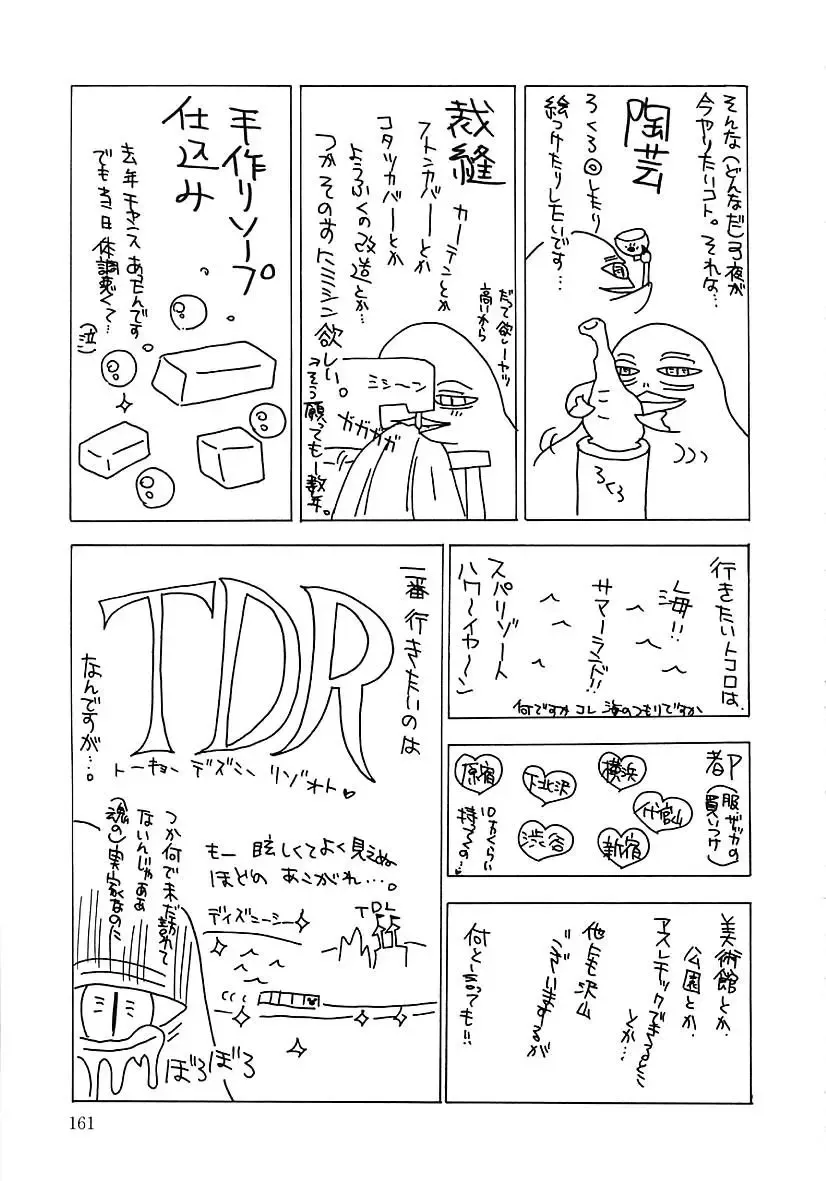 そんな(どんなだ)弓夜が
今ヤりたいコト。それな…
陶芸
ろくろ◎したり
絵つけたりしたいです…
ろくろ
裁縫
カーテンとか
フトンカバーとか
コタツカバーとか
ようふくの改造とか…
つかそのすにミシン欲しい。
→そう願っても一数年。
だって欲しーヤツ
高いから
ミシーン
ガガガガ
手作りソープ
仕込み
去年チャンスあったんです
でも当日体調悪くて…
(泣)
行きたいトコロは、
海!!
サマーランド!!
スパリゾート
ハワ〜イヤ〜ン
何ですかコレ 海のつもりですか
都
(服、ザッカの
買いつけ)
横浜
代官山
新宿
下北沢
渋谷
原宿
10万くらい
持ってくの…♥
美術館とか
公園とか、
アスレチックできるとこ
とか…
他にも沢山
ございまするが
何と言っても!!
一番行きたいのは
TDR
トーキョー ディズニー リゾォト♥
なんですが…。
もー 眩しくてよく見えぬ
ほどの あこがれ…。
ディズニーシー
TDL
つか何で未だ訪れて
ないんじゃああ
(魂の)実家なのに
ぼろぼろ
161